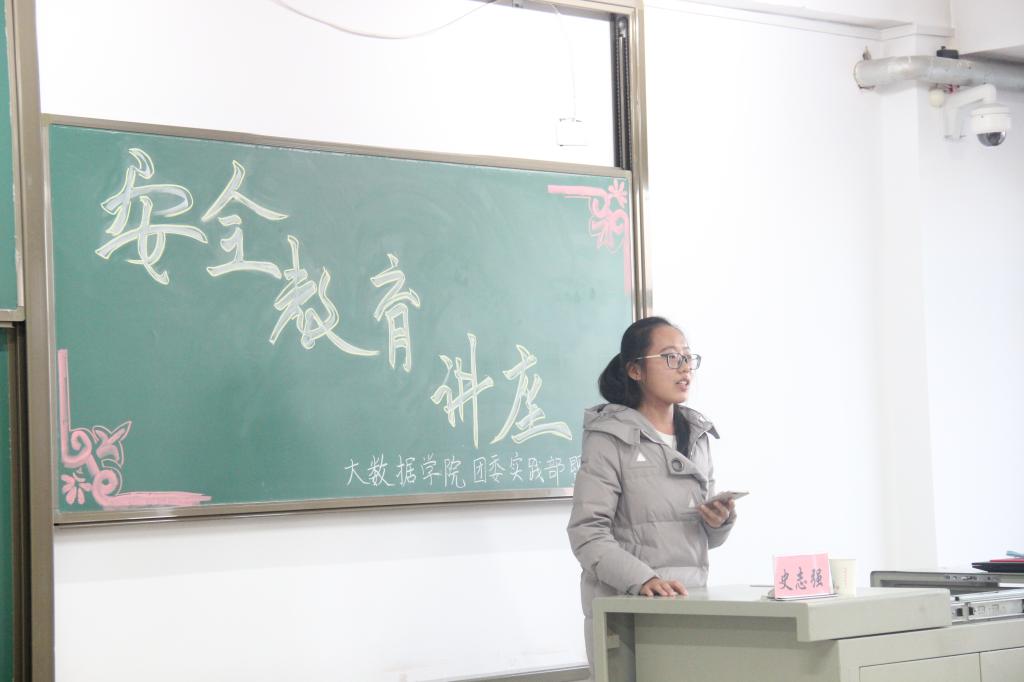 安全教育讲座
大数据学院团委实践部
史志强